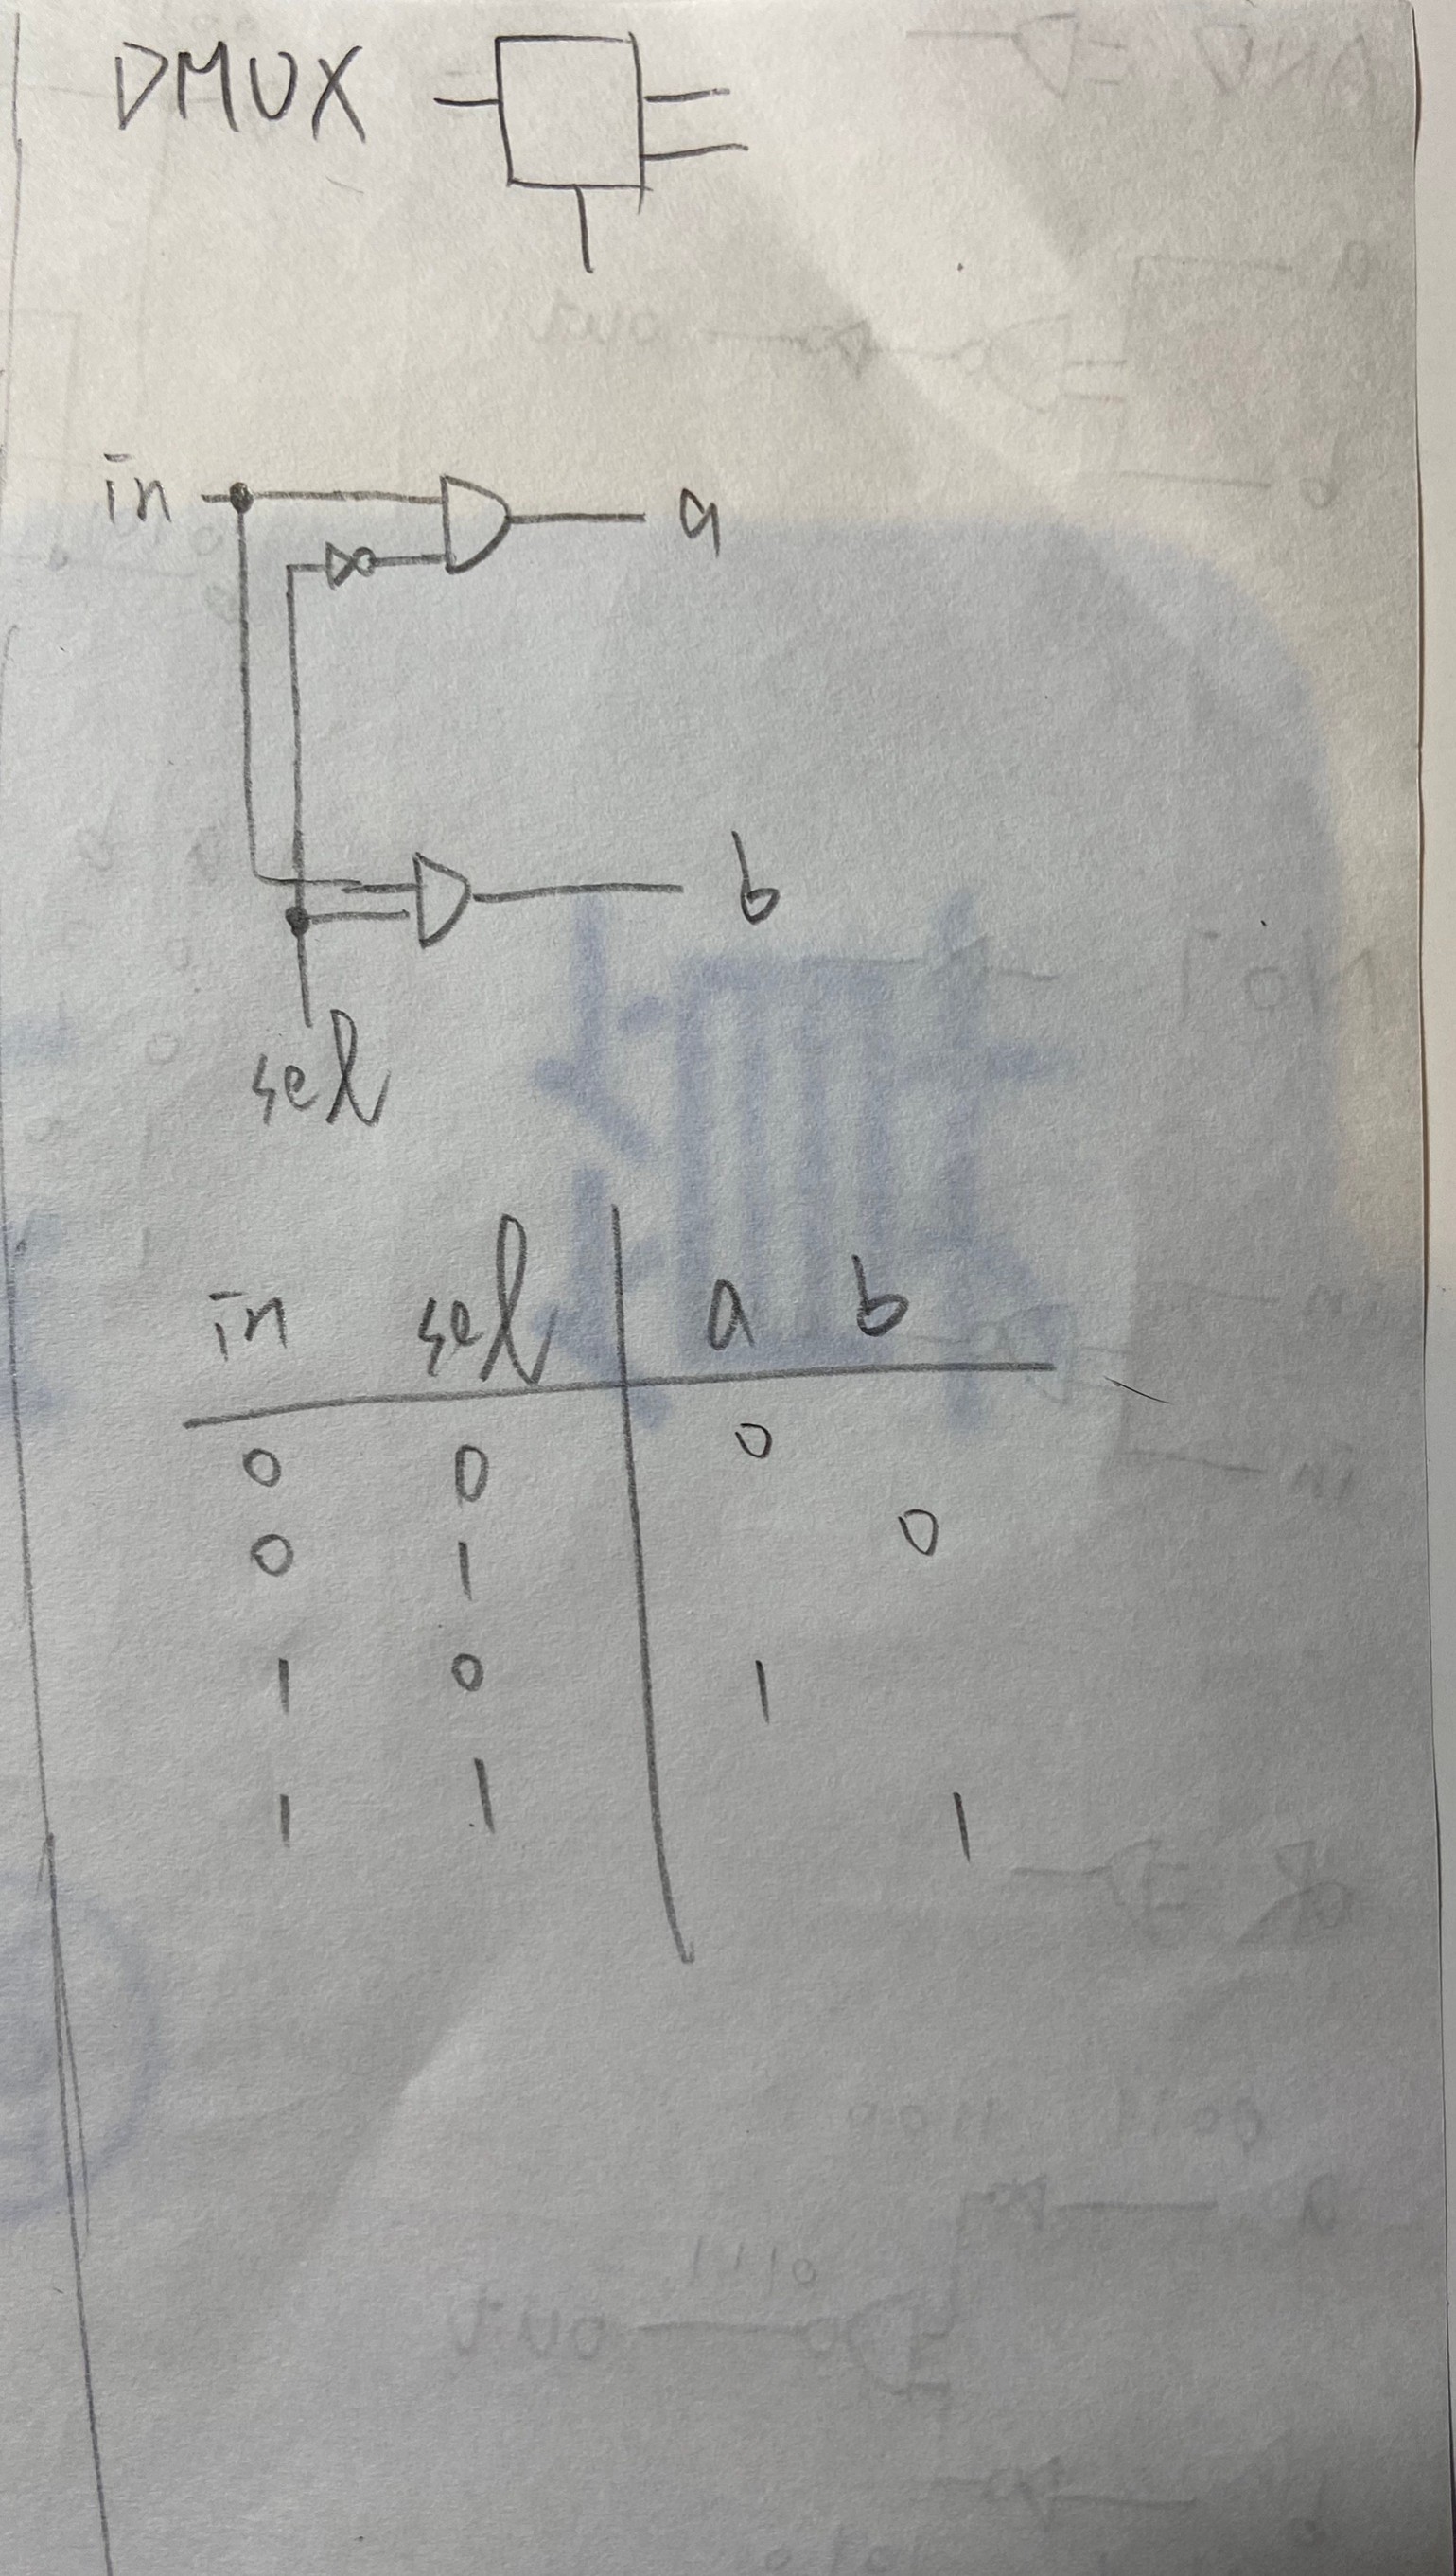 DMUX
in a
b
sel
in sel a b
0 0 0
0 1 0
1 0 1
1 1 1